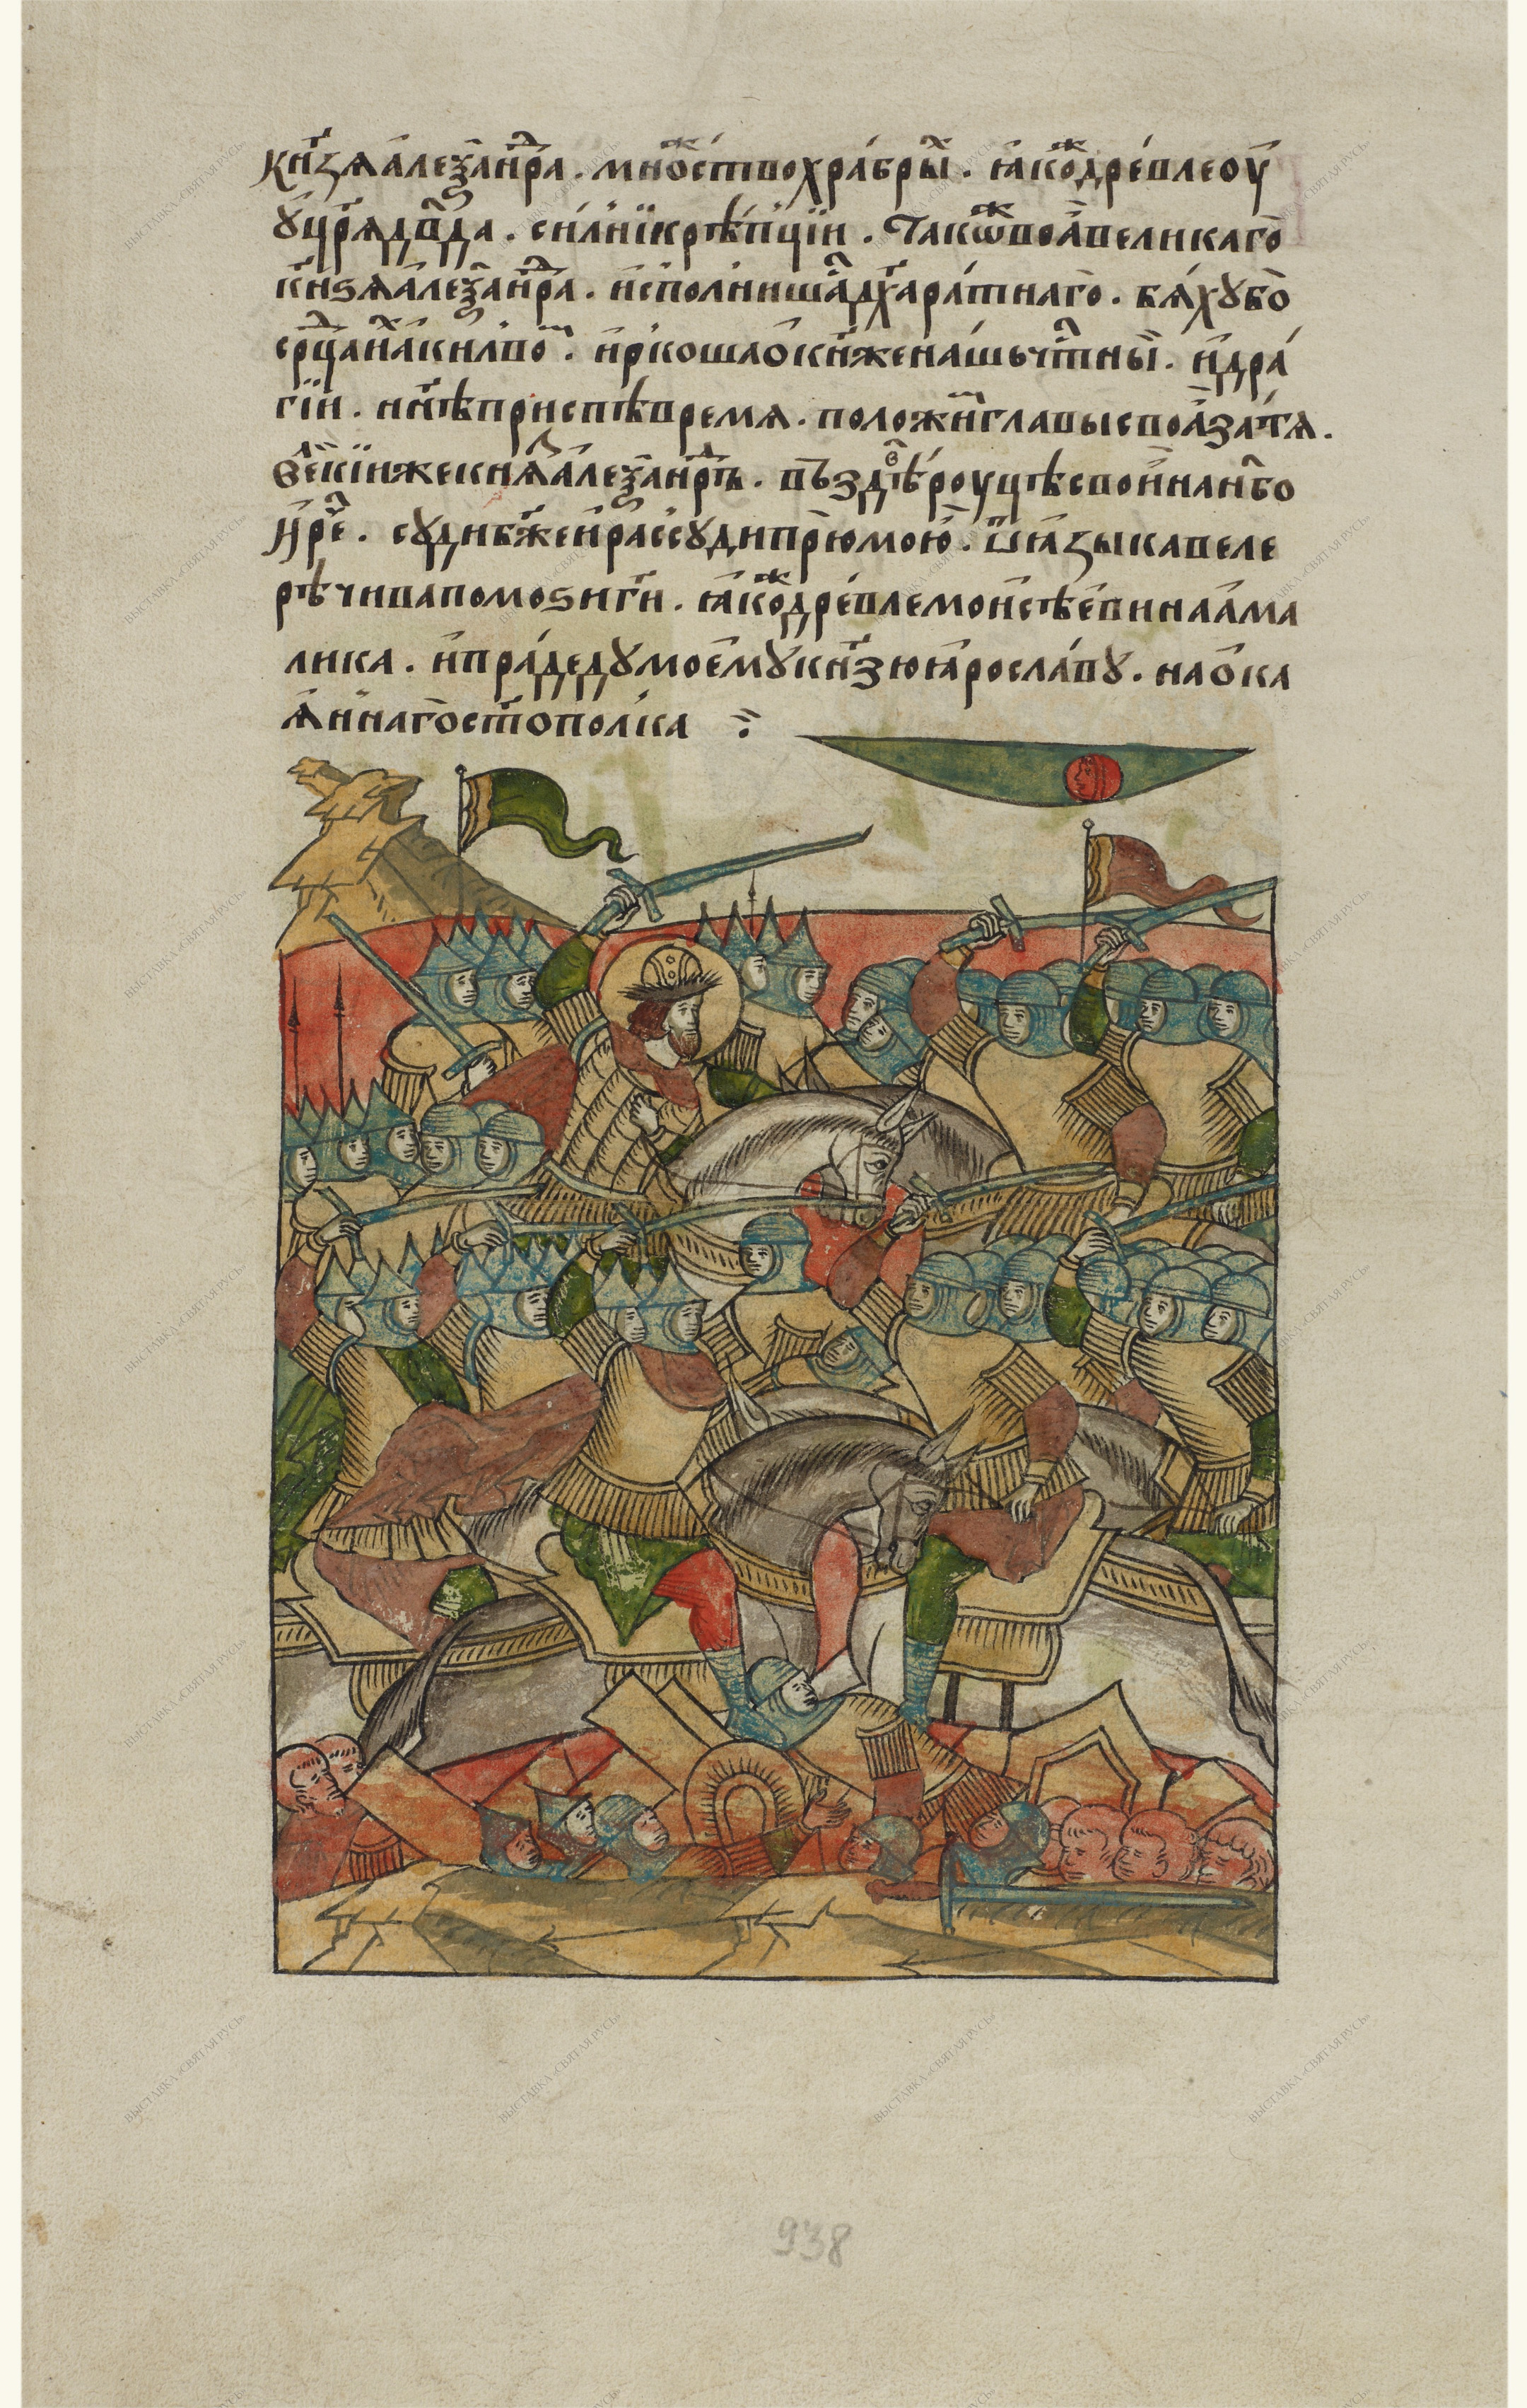 кн҃зѧ алеѯан̾дра . мно́жество хра́брых . ꙗ҆́коже дре́вле оу҆
ꙋ҆ цр҃ѧ дв҃да . си́лнїи крѣ́пцїи . та́кѡже во́ѧ вели́каго
кн҃ѕѧ а҆леѯа́н̾дра . и҆спо́лнишасѧ дх҃а ра́тнаго . бѧ́хꙋ бо
срдца и҆́хъ а҆́ки лво́мъ . и҆ рко́ша ѻ҆ кн҃же на́шь чтⷭ҇ны́й . и҆ дра
гі́й . нн҃ѣ приспѣ̀ вре́мѧ . положи́ти главы̀ своѧ̀ за тѧ̀ .
вели́кїи же кн҃ѧзь а҆леѯа́н̾дръ . въздѣ́въ рꙋ́цѣ свои̑ на нб҃о
и҆ рече̑ . сꙋдѝ бж҃е и҆ разсꙋдѝ прю̀ мою̀ . ѿ ꙗ҆зы́ка веле
рѣ́чива помоѕи́ ми гⷭ҇и . ꙗ҆́коже дре́вле моисѣ́еви на а҆ма
лика . и҆ пра́дѣдꙋ моемꙋ̀ кн҃зю ꙗ҆росла́вꙋ . на ѻ҆ка
ѧ҆́ннаго ст҃опо́лка :
938
ВЫСТАВКА «СВЯТАЯ РУСЬ»